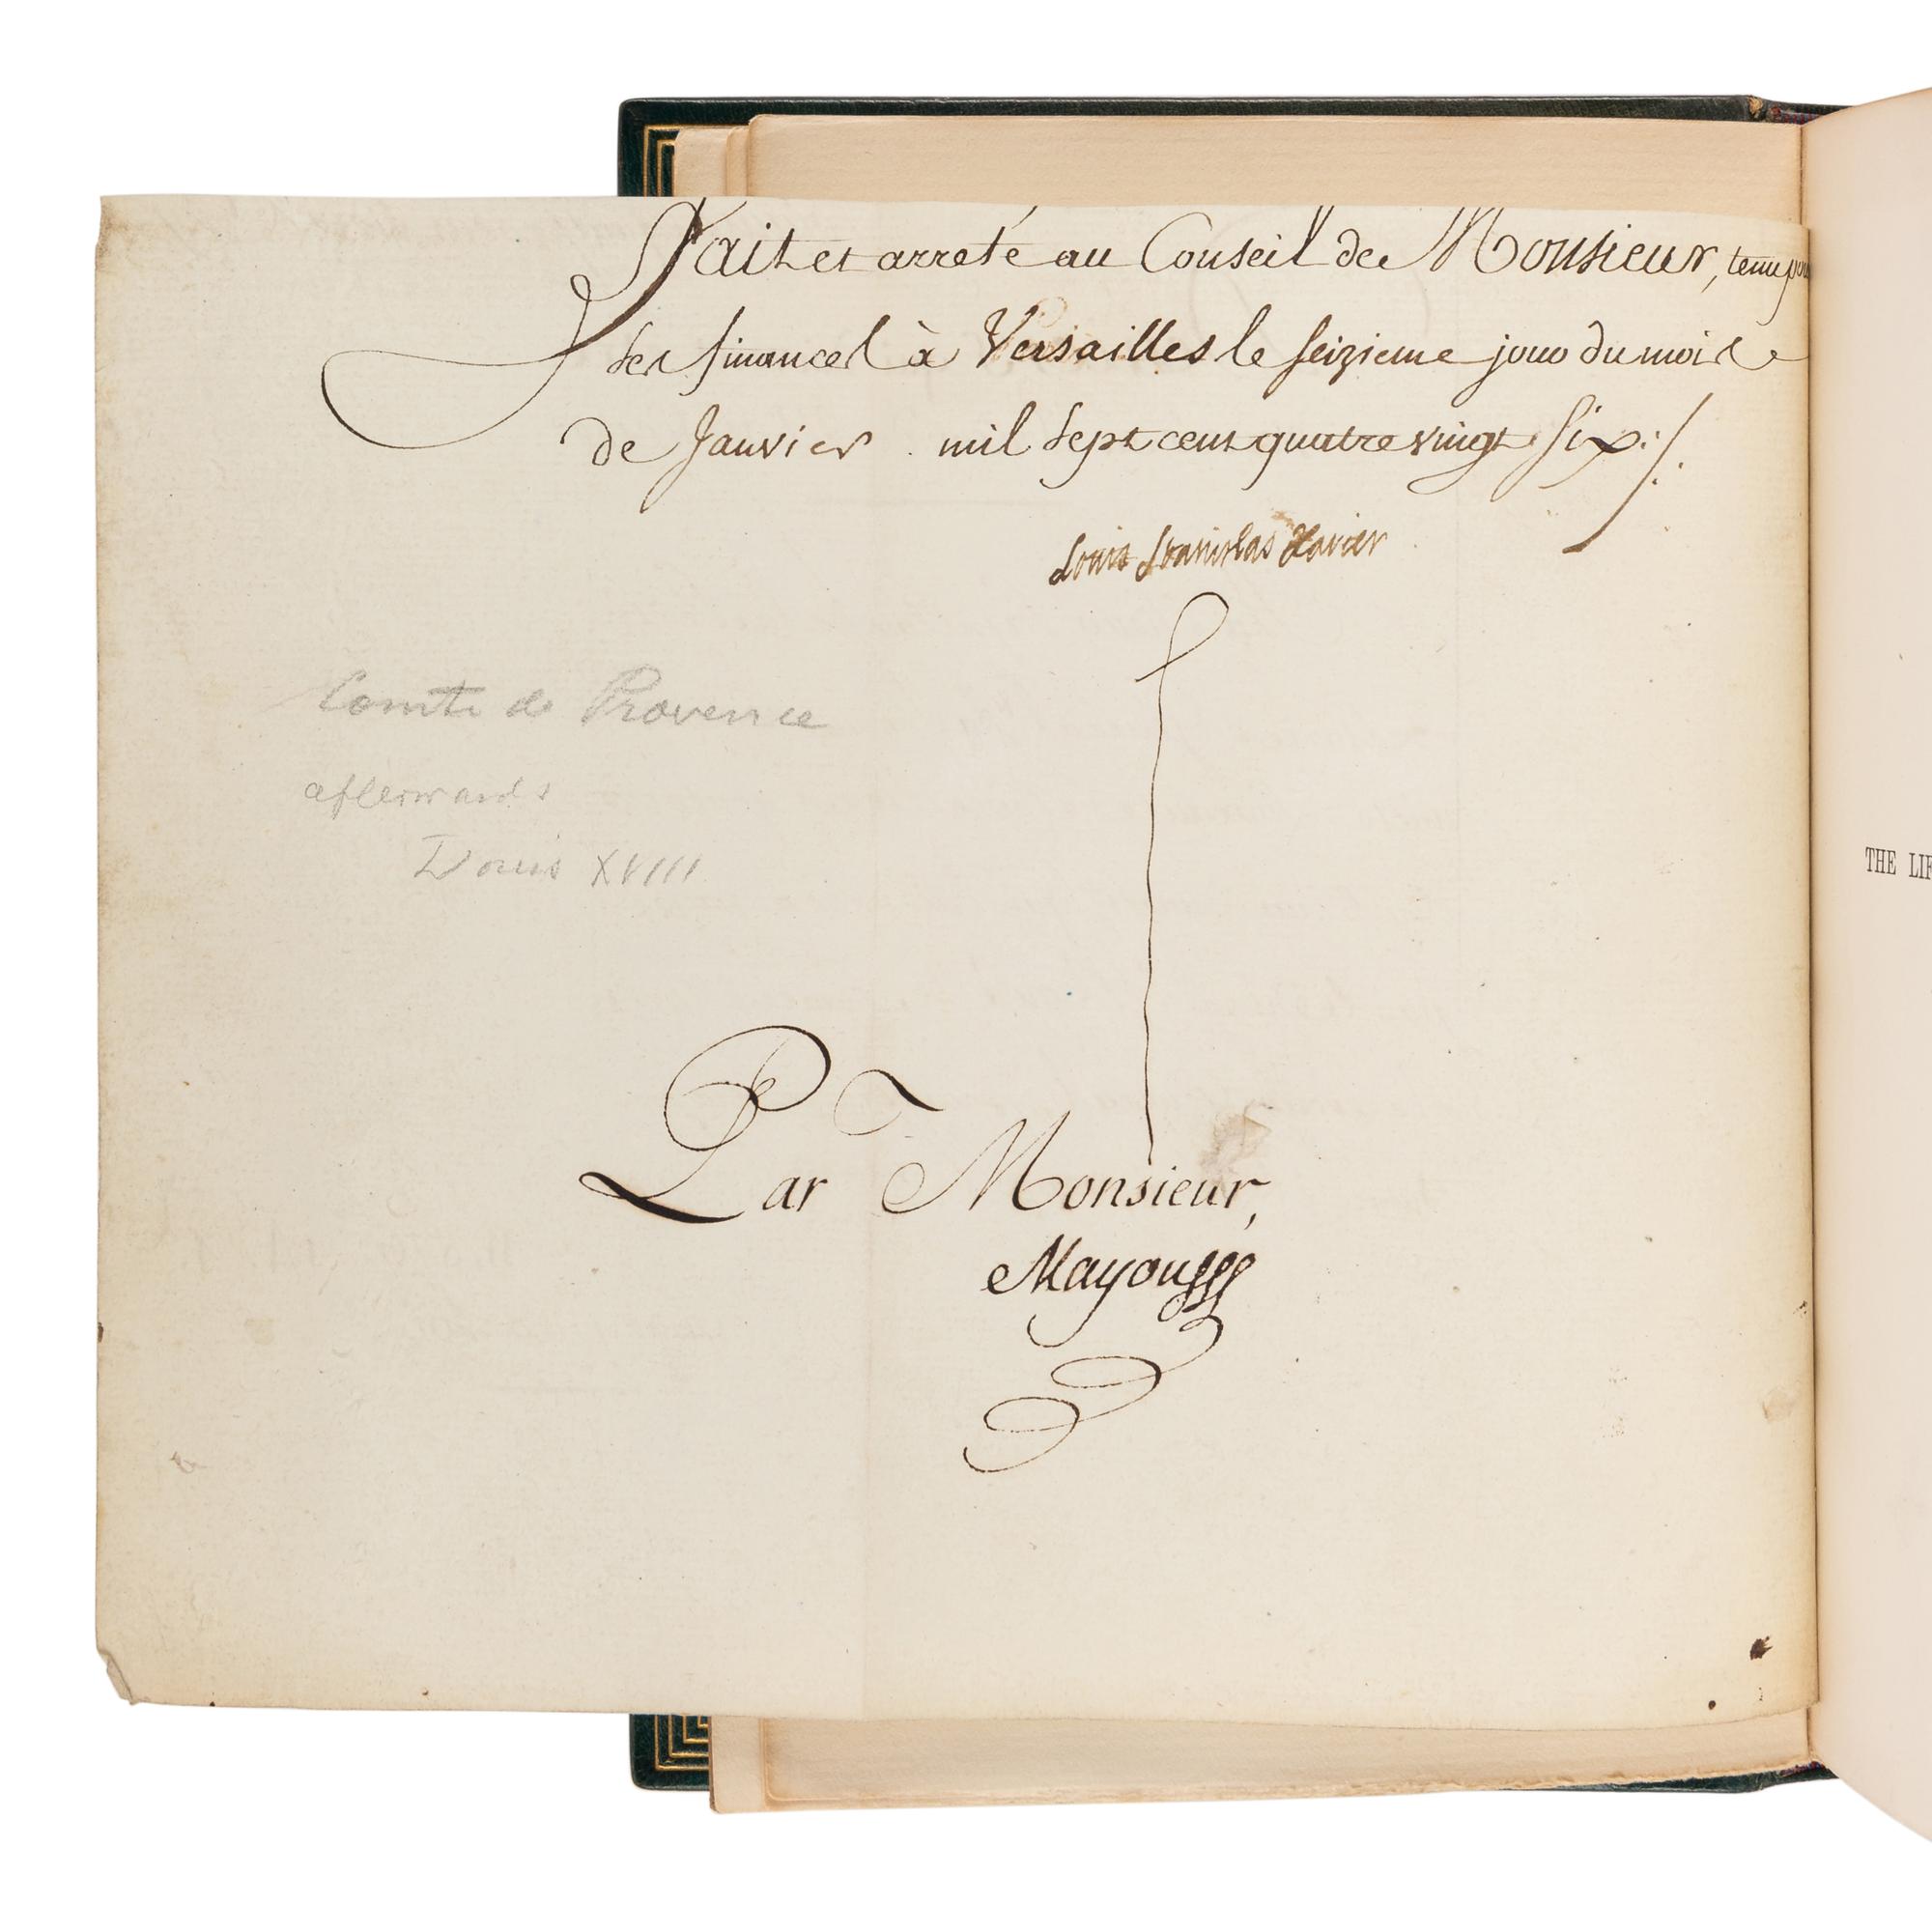 Fait et arreté au Conseil de Monsieur, tenu pour
ses finances à Versailles le seizieme jour du mois
de Janvier mil sept cent quatre vingt six ./.
Louis Stanislas Xavier
Comte de Provence
afterwards
Louis XVIII
Par Monsieur,
THE LIF